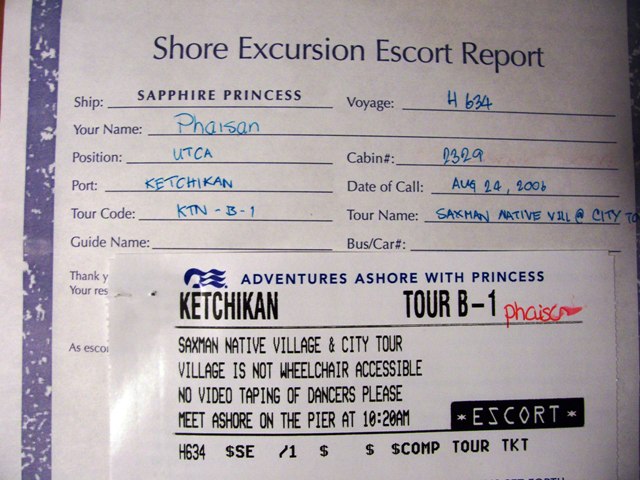 Shore Excursion Escort Report
Ship: SAPPHIRE PRINCESS Voyage: H634
Your Name: Phaisan
Position: UTCA Cabin#: 2329
Port: KETCHIKAN Date of Call: AUG 24, 2006
Tour Code: KTN-B-1 Tour Name: SAXMAN NATIVE VILL @ CITY TO
Guide Name: Bus/Car#:
Thank y
Your res
As escor
ADVENTURES ASHORE WITH PRINCESS
KETCHIKAN TOUR B-1 phaisan
SAXMAN NATIVE VILLAGE & CITY TOUR
VILLAGE IS NOT WHEELCHAIR ACCESSIBLE
NO VIDEO TAPING OF DANCERS PLEASE
MEET ASHORE ON THE PIER AT 10:20AM *ESCORT*
H634 $SE /1 $ $ $COMP TOUR TKT